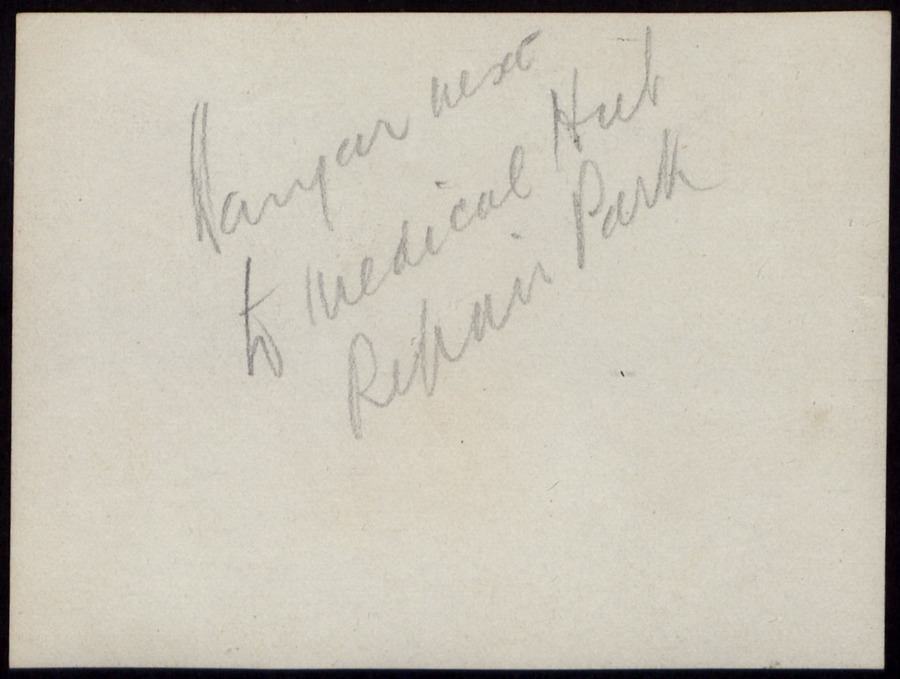 Hangar next
to medical Hut
Repair Park